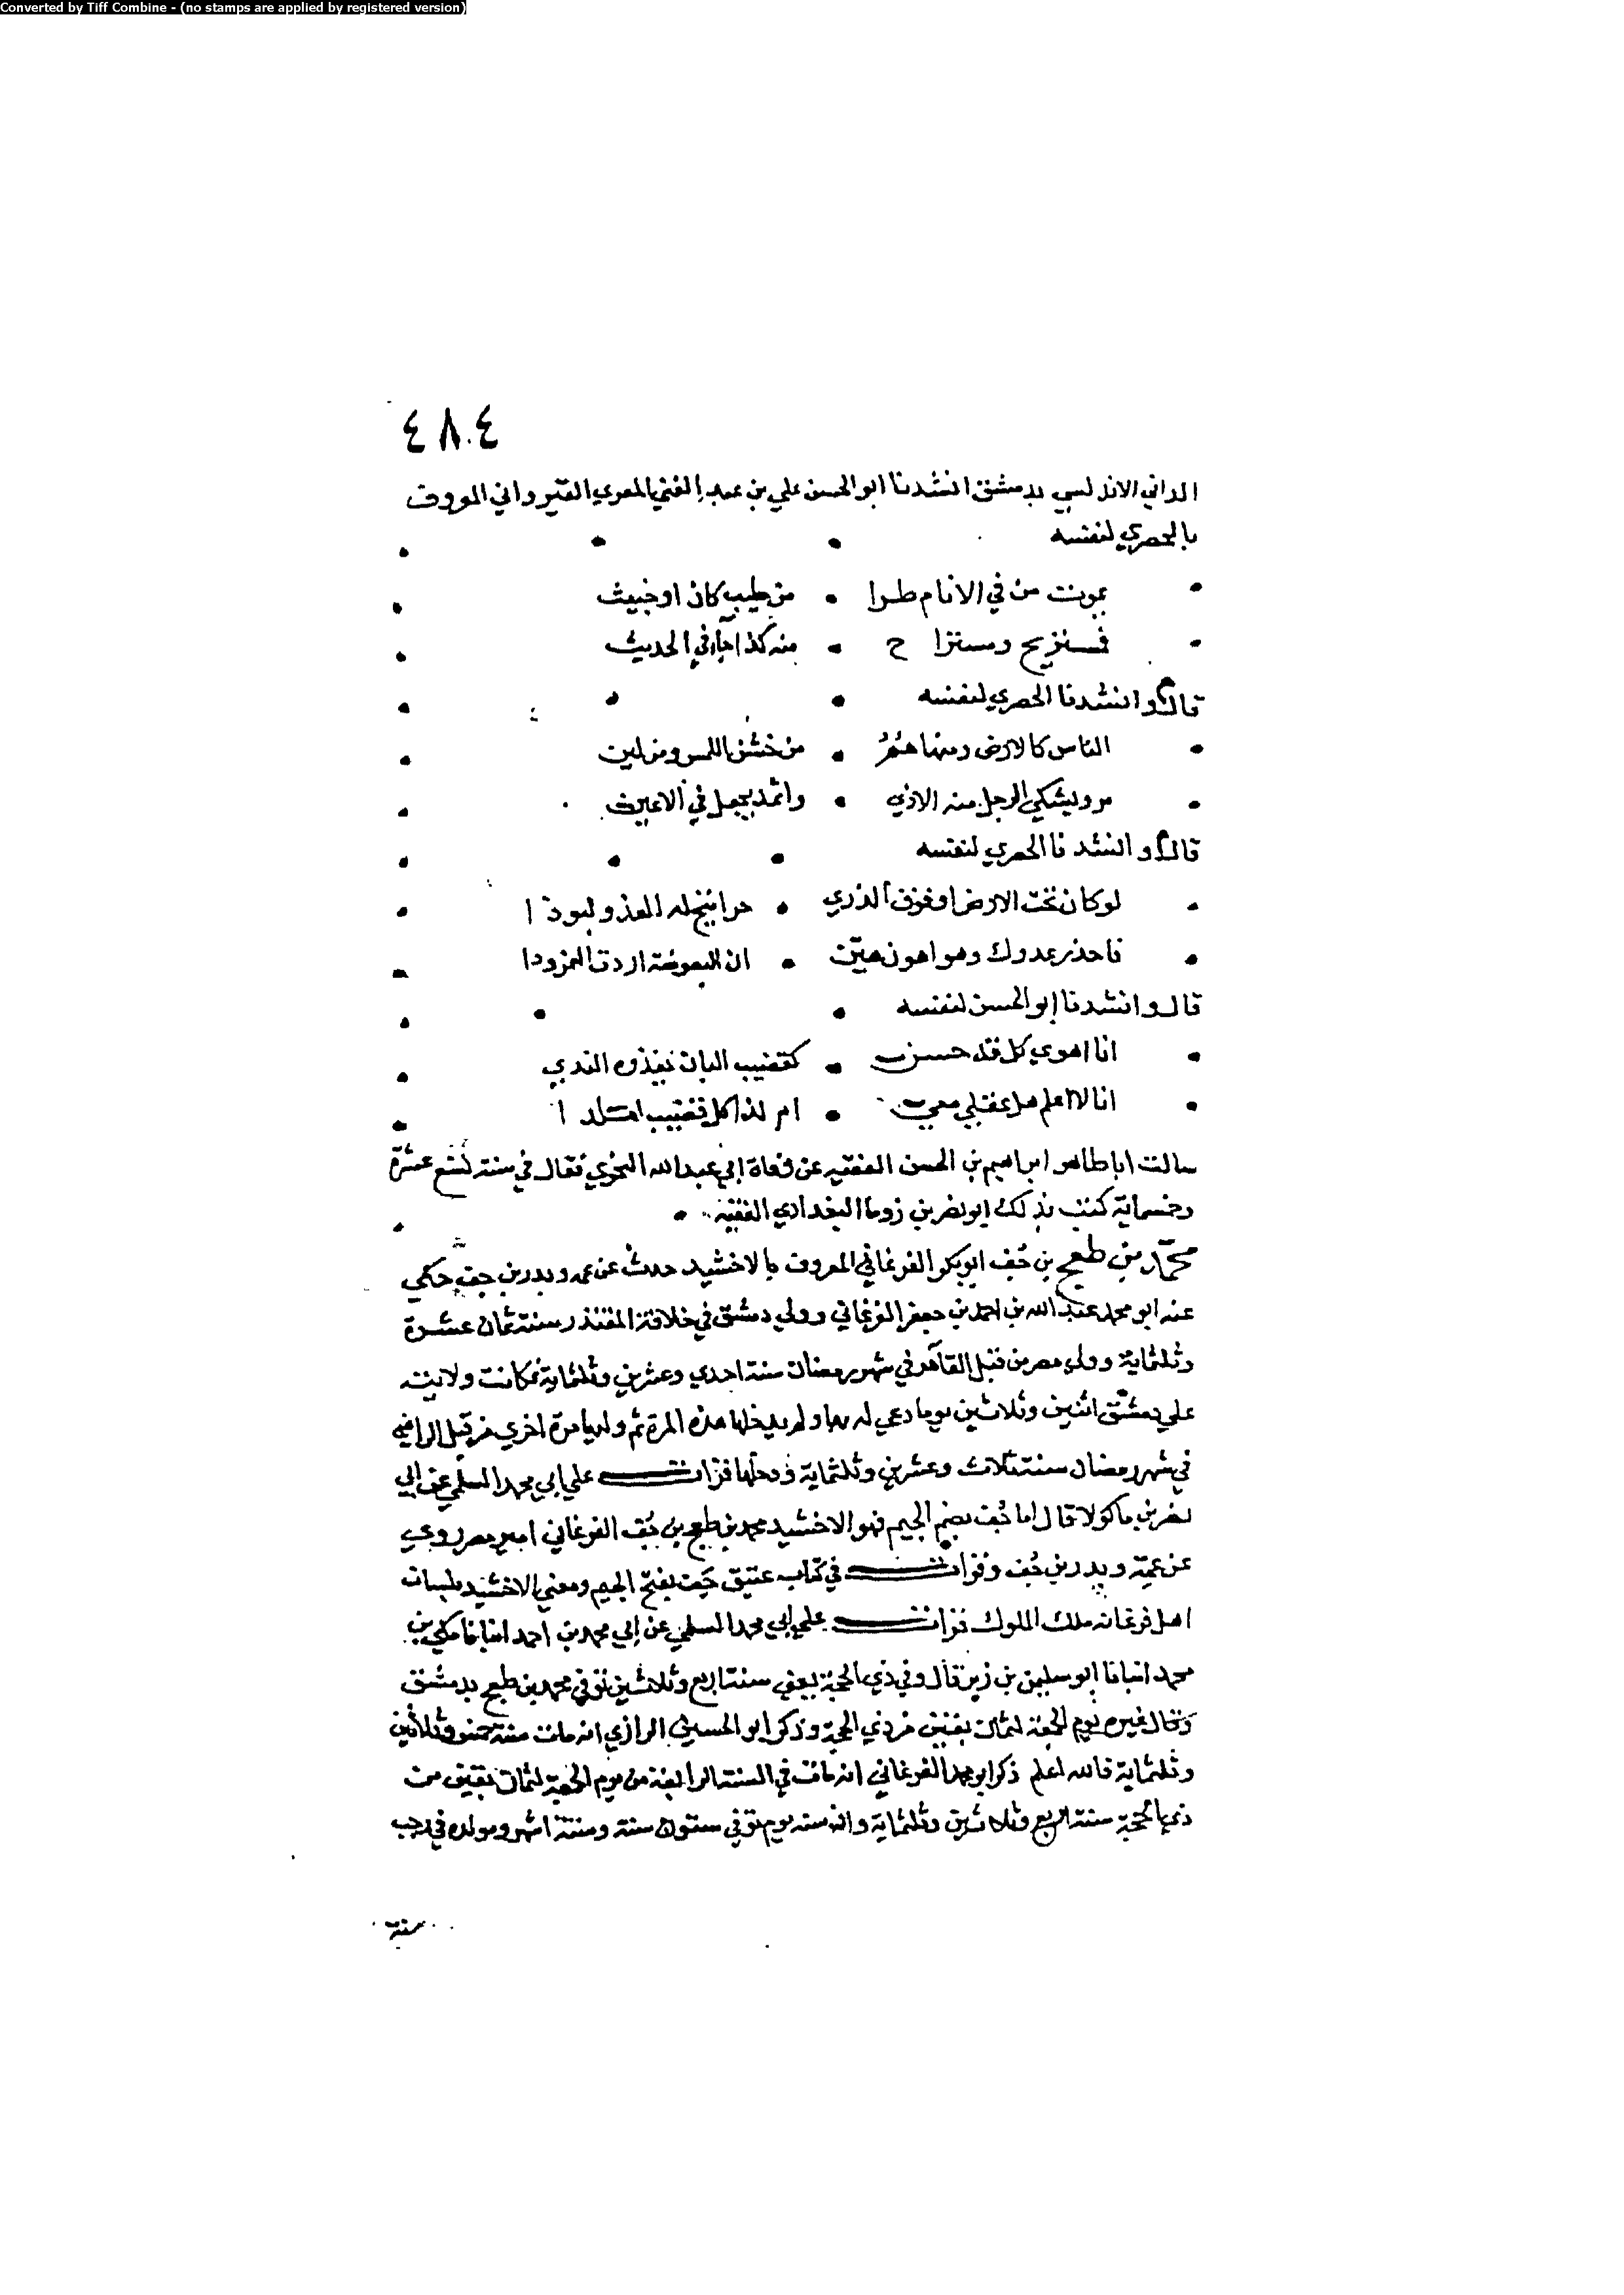 Converted by Tiff Combine - (no stamps are applied by registered version)
٤٨٠٤
الداني الاندلسي بدمشق انشدنا ابو الحسن علي بن عبد الغني المعري القيرواني المعروف
بالحصري لنفسه
يموت من في الانام طرا • من طيب كان او خبيث
فمستريح ومسترا ح • منه كذا جا في الحديث
قال وانشدنا الحصري لنفسه
الناس كالارض ومنها هم • من خشن اللمس ومن لين
مرو يشكي الرجل منه الاذي • واثمد يجعل في الاعين
قال وانشدنا الحصري لنفسه
لو كان تحت الارض او فوق الذري • حرا يتيح له العدو ليوذ ا
فاحذر عدوك وهو اهون هين • ان البعوضة اردت النمرودا
قال وانشدنا ابو الحسن لنفسه
انا اهوي كل قد حسن • كقضيب البان يغذوه الندي
انا لا اعلم هل عقلي معي • ام لذا كل قضيب
سالت ابا طاهر ابراهيم بن الحسن الفقيه عن وفاة ابي عبد الله النحوي فقال في سنة تسع عشرة
وخمسماية كتب بذلك ابو نصر بن زوما البغدادي الفقيه
محمد بن طغج بن جف ابو بكر الفرغاني المعروف بالاخشيد حدث عن عمه وبدر بن جف حكي
عنه ابو محمد عبد الله بن احمد بن جعفر الفرغاني وولي دمشق في خلافة المقتدر سنة ثمان عشرة
وثلثماية وولي مصر من قبل القاهر في شهر رمضان سنة احدي وعشرين وثلثماية فكانت ولايته
علي دمشق اثنين وثلاثين يوما دعي له بها ولم يدخلها هذه المرة ثم وليها مرة اخري من قبل الراضي
في شهر رمضان سنة ثلاث وعشرين وثلثماية ودخلها قرات علي ابي محمد السلمي عن ابي
نصر بن ماكولا قال اما جف بضم الجيم فهو الاخشيد محمد بن طغج بن جف الفرغاني امير مصر روي
عن عمه وبدر بن جف وقرات في كتاب عتيق جف بفتح الجيم ومعني الاخشيد بلسان
اهل فرغانه ملك الملوك قرات علي ابي محمد السلمي عن ابي محمد بن احمد انبانا مكي بن
محمد انبانا ابو سليمن بن زبر قال وفي ذي الحجة يعني سنة اربع وثلاثين توفي محمد بن طغج بدمشق
وقال غيره يوم الجمعة لثمان بقين من ذي الحجة وذكر ابو الحسين الرازي انه مات سنة خمس وثلاثين
وثلثماية فالله اعلم ذكر ابو محمد الفرغاني انه مات في السنة الرابعة من يوم الجمعة لثمان بقين من
ذي الحجة سنة اربع وثلاثين وثلثماية وان سنه يوم توفي ستون سنة وستة اشهر ومولده في رجب
سنة